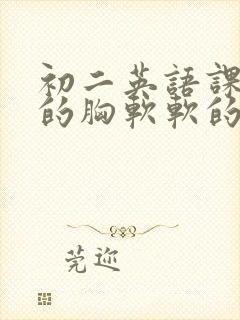 初二英語課
的胸軟軟的
莞迩